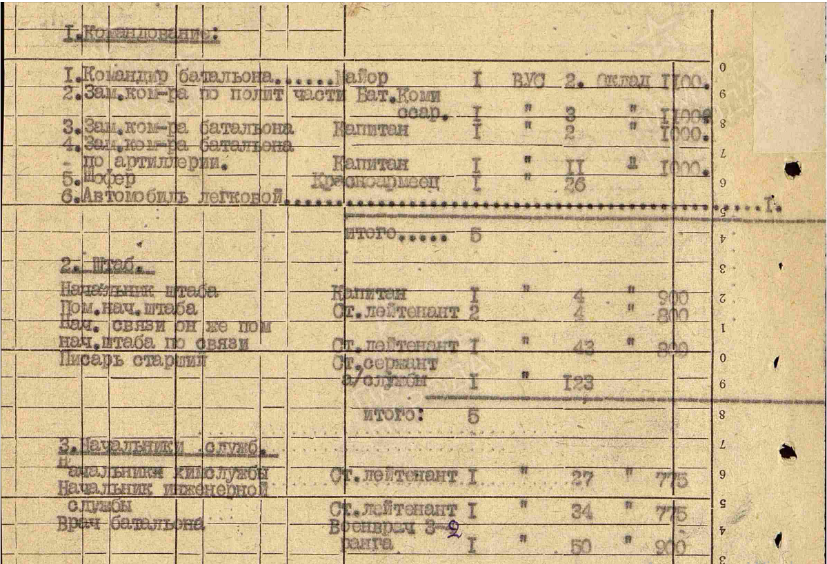 I.Командование:
I.Командир батальона......Майор I ВУС 2. Оклад II00.
2.Зам.ком-ра по полит части Бат.Коми
ссар. I " 3 " II00.
3.Зам.ком-ра батальона Капитан I " 2 " I000.
4.Зам.ком-ра батальона
по артиллерии. Капитан I " II " I000.
5.Шофер Красноармеец I " 26
6.Автомобиль легковой. I.
итого..... 5
2. Штаб.
Начальник штаба Капитан I " 4 " 900
Пом.нач.штаба Ст.лейтенант 2 4 " 800
Нач. связи он же пом
нач.штаба по связи Ст.лейтенант I " 43 " 800
Писарь старший Ст.сержант
а/службы I " I23
итого: 5
3.Начальники служб.
Начальники химслужбы Ст.лейтенант I " 27 " 775
Начальник инженерной
службы Ст.лейтенант I " 34 " 775
Врач батальона Военврач 3-2
ранга I " 50 " 900
0
9
8
7
6
5
4
3
2
1
0
9
8
7
6
5
4
3